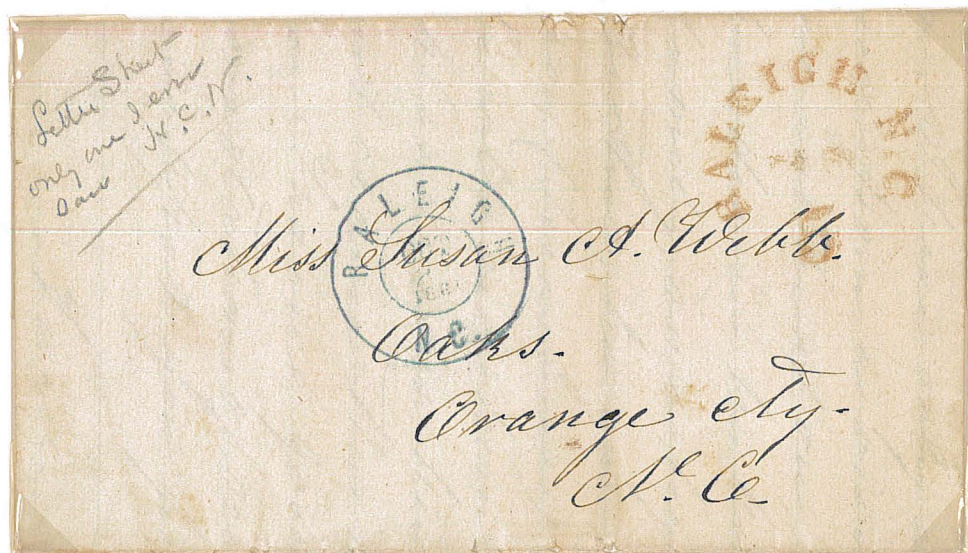 Letter Sheet
only one I ever
saw H. C. N.
RALEIGH N.C.
RALEIGH
N.C.
Miss Susan A. Webb.
Oaks.
Orange Cty-
N. Ca-